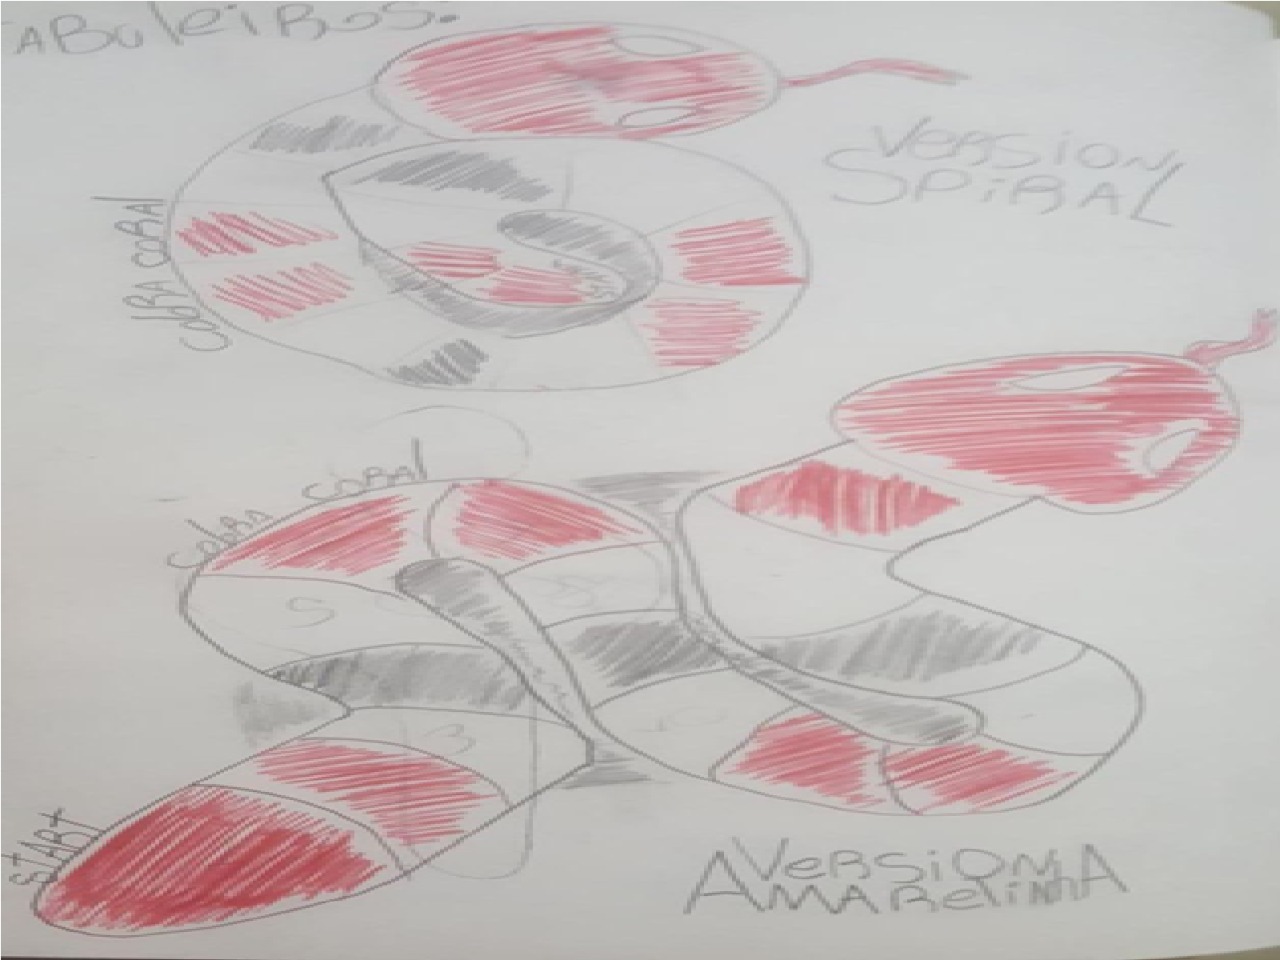 TABULEIROS:
VERSION
SPIRAL
COBRA CORAL
COBRA CORAL
S
3
START
VERSION
AMARELINHA